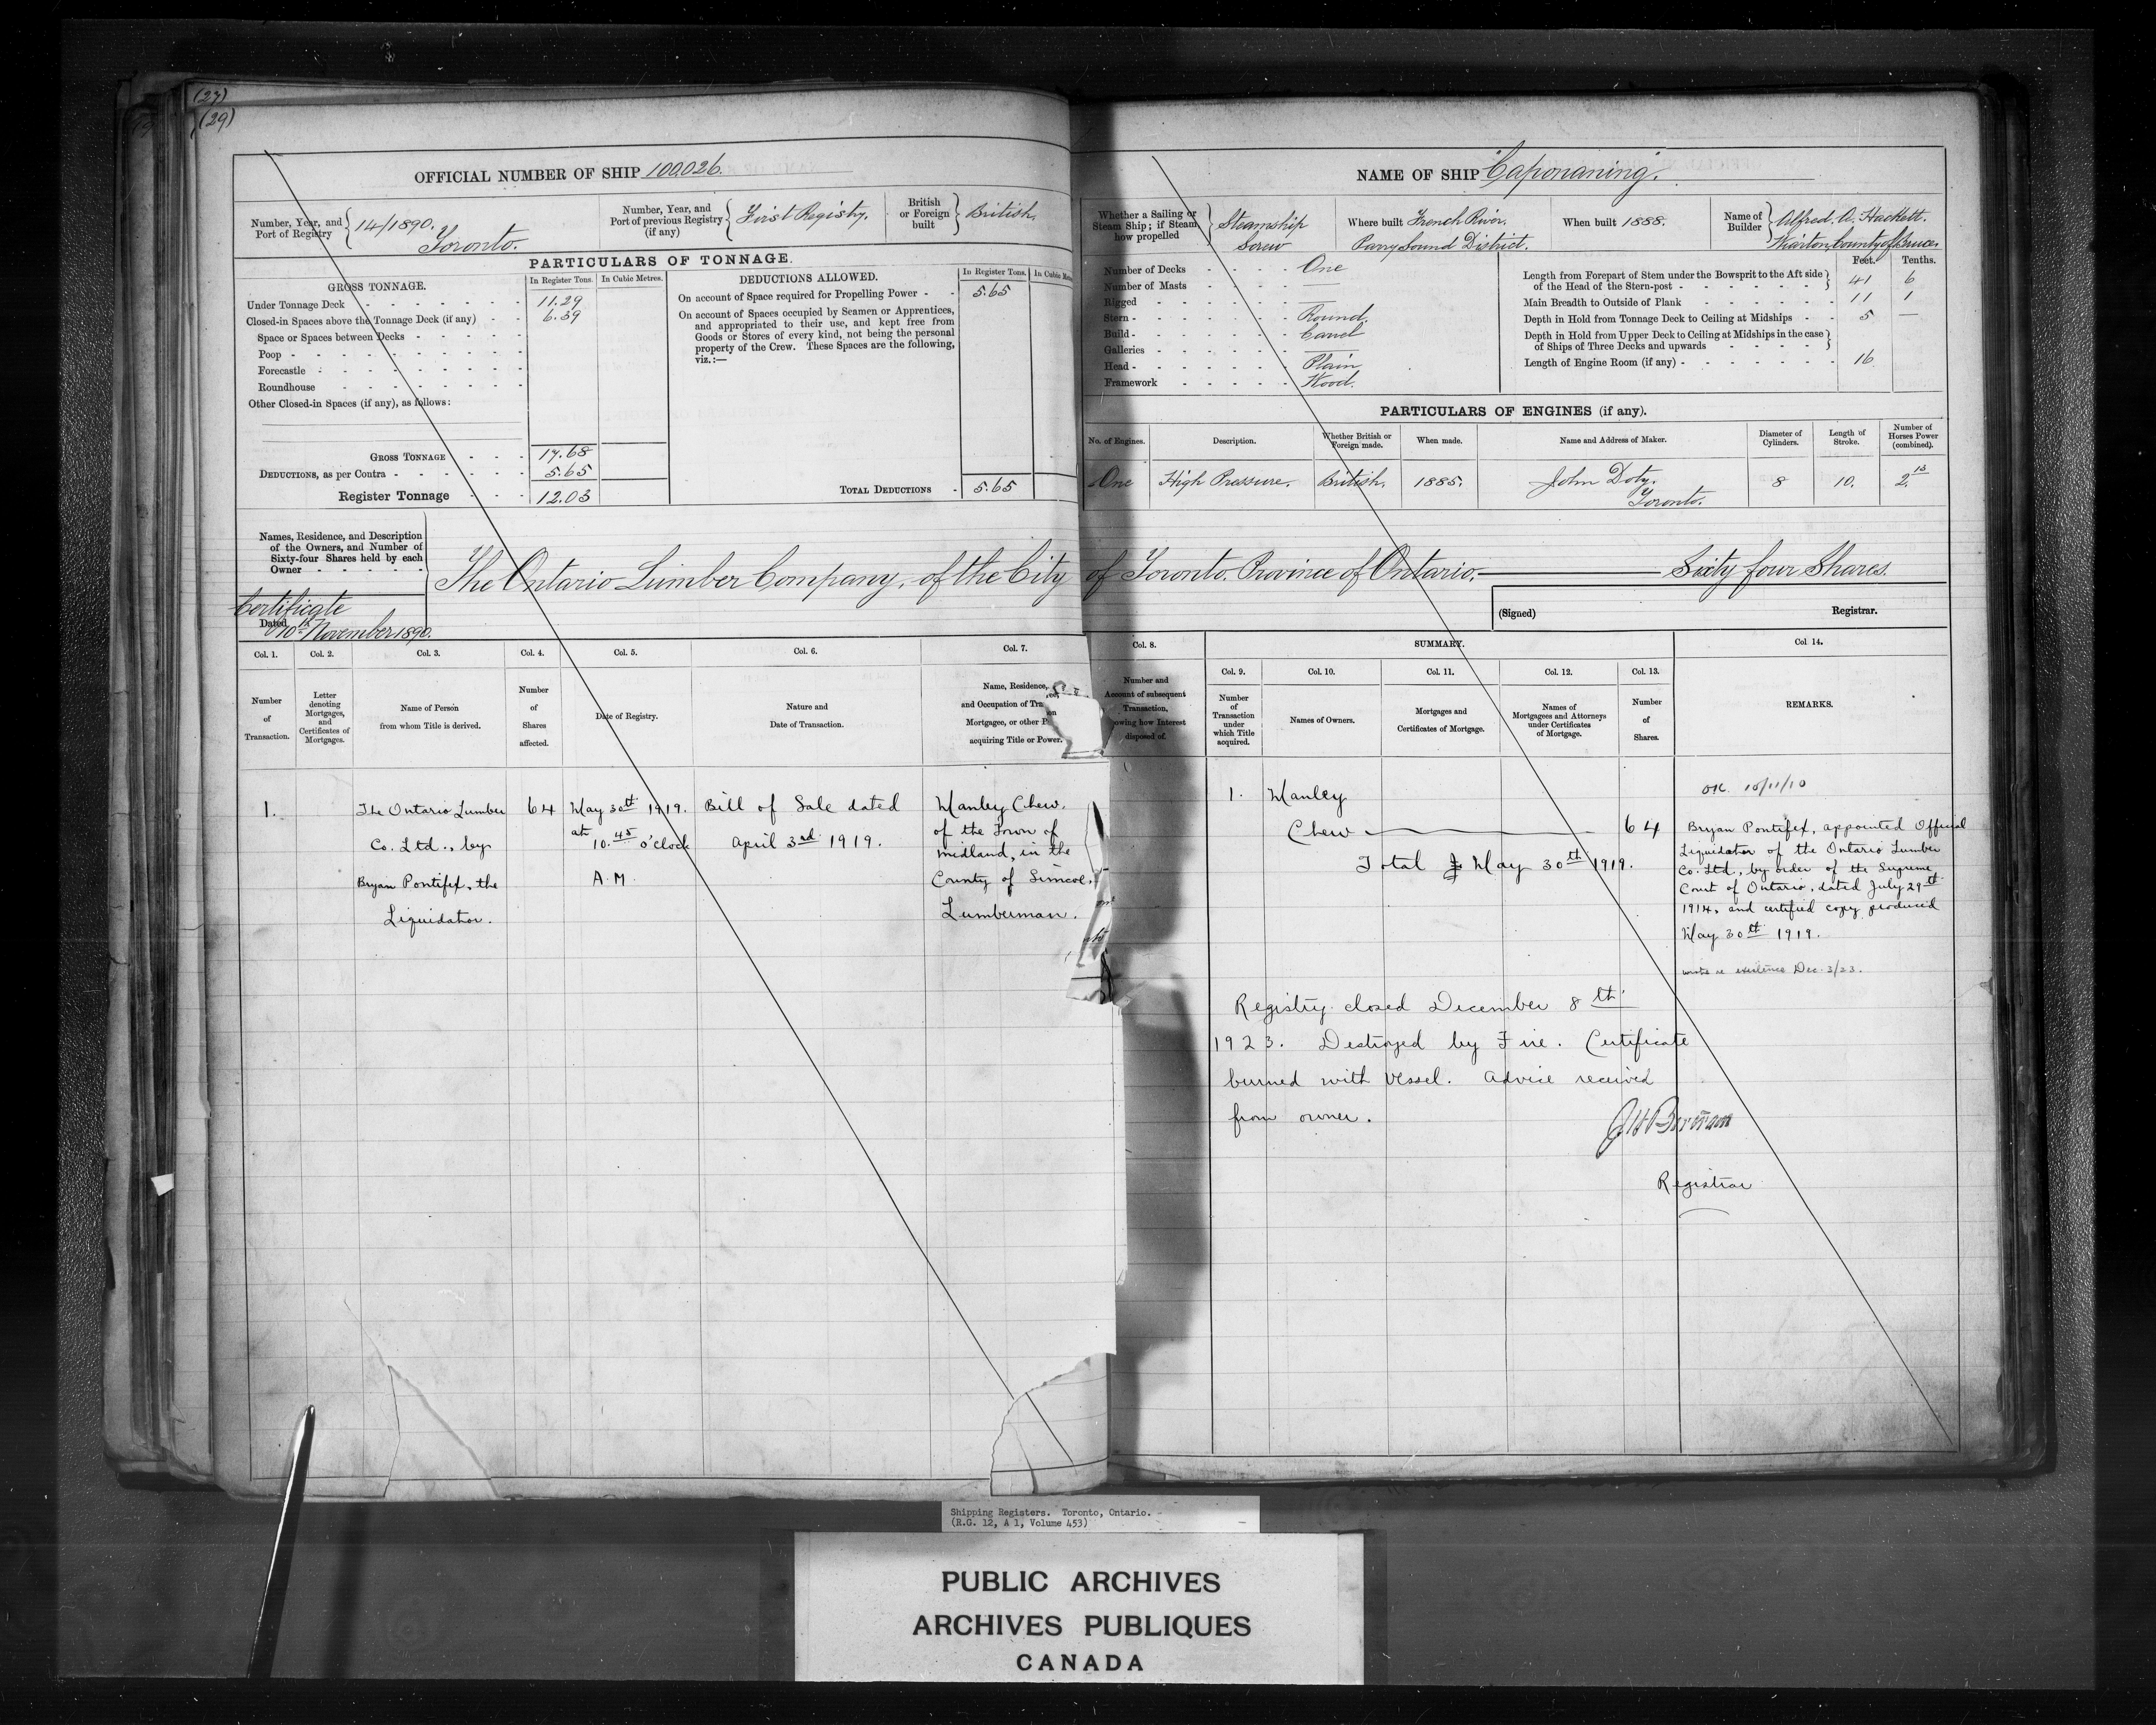 (27)
(29)
OFFICIAL NUMBER OF SHIP 100,026.
Number, Year, and Port of Registry { 14/1890. Toronto.
Number, Year, and Port of previous Registry (if any) { First Registry.
British or Foreign built } British.
PARTICULARS OF TONNAGE.
GROSS TONNAGE. In Register Tons. In Cubic Metres.
Under Tonnage Deck 11.29
Closed-in Spaces above the Tonnage Deck (if any) 6.39
Space or Spaces between Decks
Poop
Forecastle
Roundhouse
Other Closed-in Spaces (if any), as follows:
GROSS TONNAGE 17.68
DEDUCTIONS, as per Contra 5.65
Register Tonnage 12.03
DEDUCTIONS ALLOWED. In Register Tons. In Cubic
On account of Space required for Propelling Power 5.65
On account of Spaces occupied by Seamen or Apprentices,
and appropriated to their use, and kept free from
Goods or Stores of every kind, not being the personal
property of the Crew. These Spaces are the following,
viz.:—
TOTAL DEDUCTIONS 5.65
NAME OF SHIP "Caponaning".
Whether a Sailing or Steam Ship; if Steam how propelled } Steamship Screw
Where built French River. Parry Sound District.
When built 1888.
Name of Builder } Alfred A. Hackett. Wiarton, County of Bruce.
Number of Decks One
Number of Masts —
Rigged —
Stern Round.
Build Carvel
Galleries —
Head Plain
Framework Wood.
Feet. Tenths.
Length from Forepart of Stem under the Bowsprit to the Aft side
of the Head of the Stern-post 41 6
Main Breadth to Outside of Plank 11 1
Depth in Hold from Tonnage Deck to Ceiling at Midships 5 —
Depth in Hold from Upper Deck to Ceiling at Midships in the case
of Ships of Three Decks and upwards
Length of Engine Room (if any) 16
PARTICULARS OF ENGINES (if any).
No. of Engines. Description. Whether British or Foreign made. When made. Name and Address of Maker. Diameter of Cylinders. Length of Stroke. Number of Horses Power (combined).
One High Pressure. British. 1885. John Doty. Toronto. 8 10. 2.13
Names, Residence, and Description
of the Owners, and Number of
Sixty-four Shares held by each
Owner
The Ontario Lumber Company, of the City of Toronto. Province of Ontario. Sixty four Shares.
Certificate
Dated 10th November 1890.
(Signed) Registrar.
Col. 1. Col. 2. Col. 3. Col. 4. Col. 5. Col. 6. Col. 7. Col. 8.
Number of Transaction.
Letter denoting Mortgages, and Certificates of Mortgages.
Name of Person from whom Title is derived.
Number of Shares affected.
Date of Registry.
Nature and Date of Transaction.
Name, Residence,
and Occupation of
Mortgagee, or other
acquiring Title or Power.
Number and
Account of subsequent
Transaction,
showing how Interest
disposed of.
SUMMARY.
Col. 9. Col. 10. Col. 11. Col. 12. Col. 13. Col 14.
Number of Transaction under which Title acquired.
Names of Owners.
Mortgages and Certificates of Mortgage.
Names of Mortgagees and Attorneys under Certificates of Mortgage.
Number of Shares.
REMARKS.
1.
The Ontario Lumber
Co. Ltd., by
Bryan Pontifex, the
Liquidator.
64
May 30th 1919.
at 10.45 o'clock
A.M.
Bill of Sale dated
April 3rd 1919.
Manley Chew,
of the Town of
Midland, in the
County of Simcoe,
Lumberman.
1. Manley
Chew 64
Total May 30th 1919.
OK 10/11/10
Bryan Pontifex, appointed Official
Liquidator of the Ontario Lumber
Co. Ltd., by order of the Supreme
Court of Ontario, dated July 29th
1914, and certified copy produced
May 30th 1919.
wrote re existence Dec. 3/23.
Registry closed December 8th
1923. Destroyed by Fire. Certificate
burned with vessel. Advice received
from owner.
Registrar
Shipping Registers. Toronto, Ontario.
(R.G. 12, A 1, Volume 453)
PUBLIC ARCHIVES
ARCHIVES PUBLIQUES
CANADA